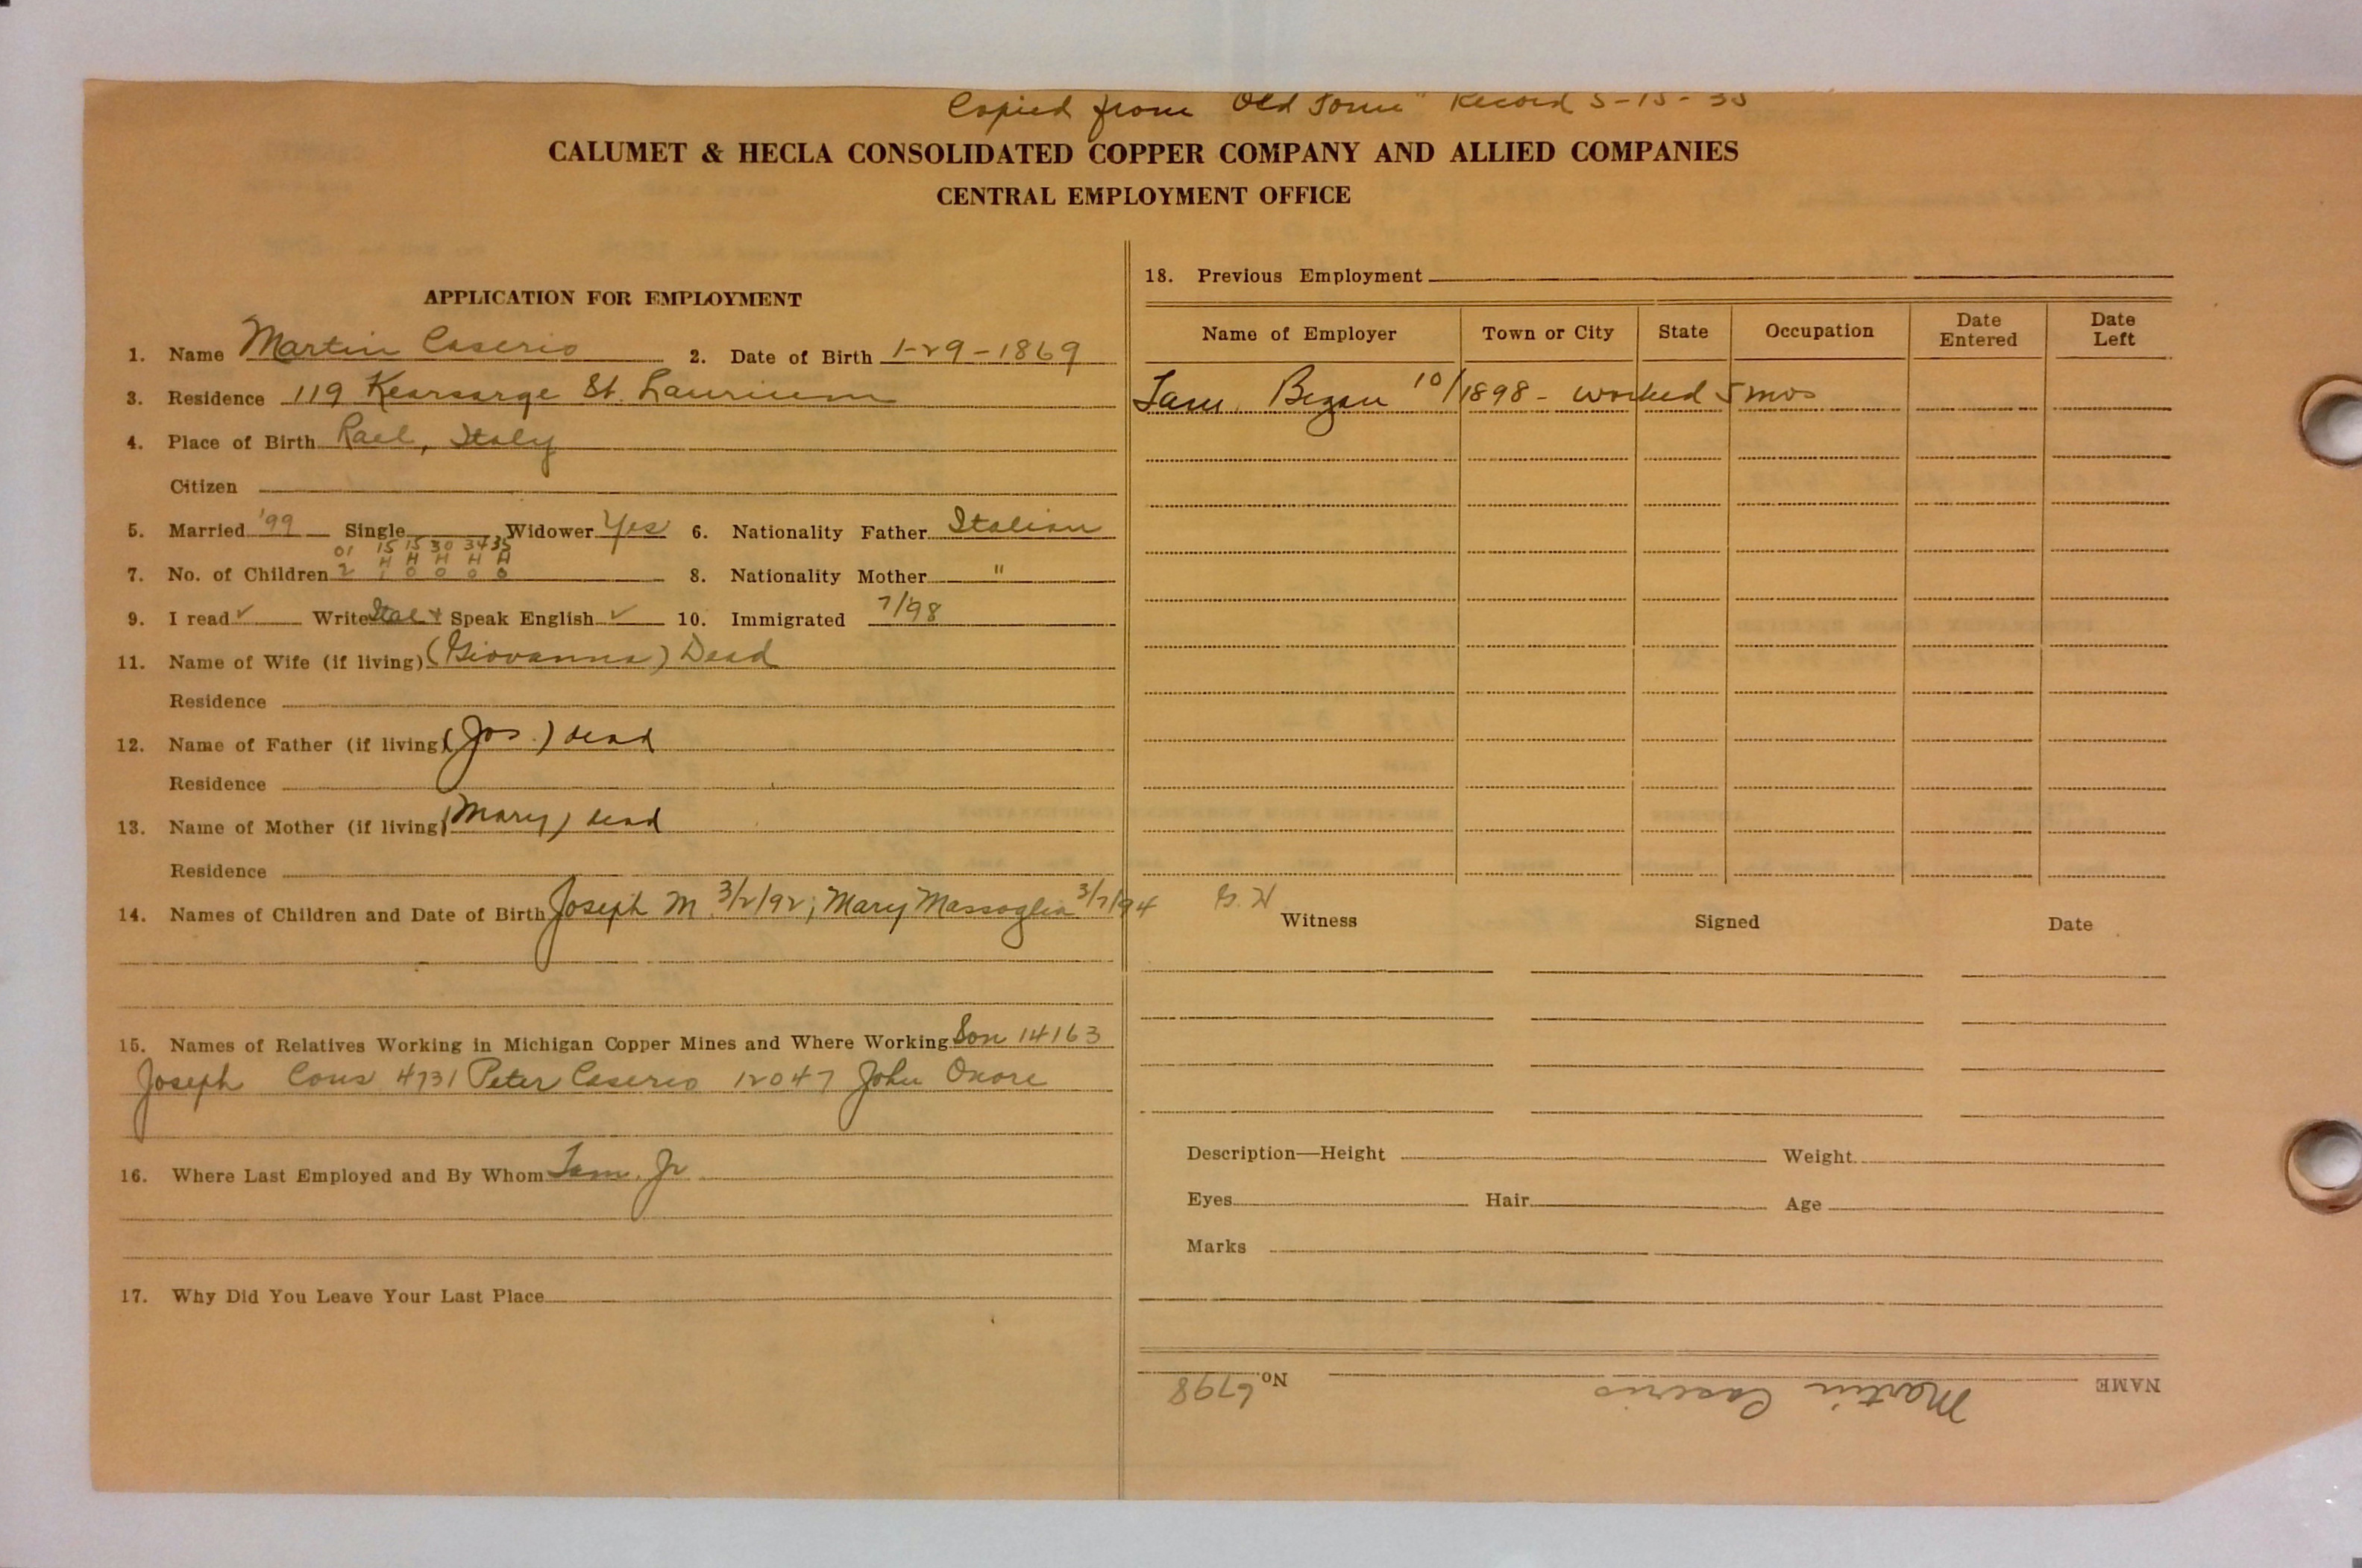 Copied from "Old Form" Record 5-15-35
CALUMET & HECLA CONSOLIDATED COPPER COMPANY AND ALLIED COMPANIES
CENTRAL EMPLOYMENT OFFICE
APPLICATION FOR EMPLOYMENT
1. Name Martin Caserio 2. Date of Birth 1-29-1869
3. Residence 119 Kearsarge St. Laurium
4. Place of Birth Italy
Citizen
5. Married '99 Single Widower Yes 6. Nationality Father Italian
01 15 15 30 34 35
H H H H H
7. No. of Children 2 1 0 0 0 0 8. Nationality Mother "
9. I read ✓ Write Ital ✓ Speak English ✓ 10. Immigrated 7/98
11. Name of Wife (if living) (Giovanna) Dead
Residence
12. Name of Father (if living) (Jos.) dead
Residence
13. Name of Mother (if living) (Mary) dead
Residence
14. Names of Children and Date of Birth Joseph M. 3/2/92; Mary Massoglia 3/7/94
15. Names of Relatives Working in Michigan Copper Mines and Where Working Son 14163
Joseph Cous 4731 Peter Caserio 12047 John Onore
16. Where Last Employed and By Whom Tam. Jr
17. Why Did You Leave Your Last Place
18. Previous Employment
Name of Employer Town or City State Occupation Date Entered Date Left
Tam. Began 10/1898 - worked 5 mos
G. H
Witness Signed Date
Description—Height Weight
Eyes Hair Age
Marks
NAME Martin Caserio No. 6798